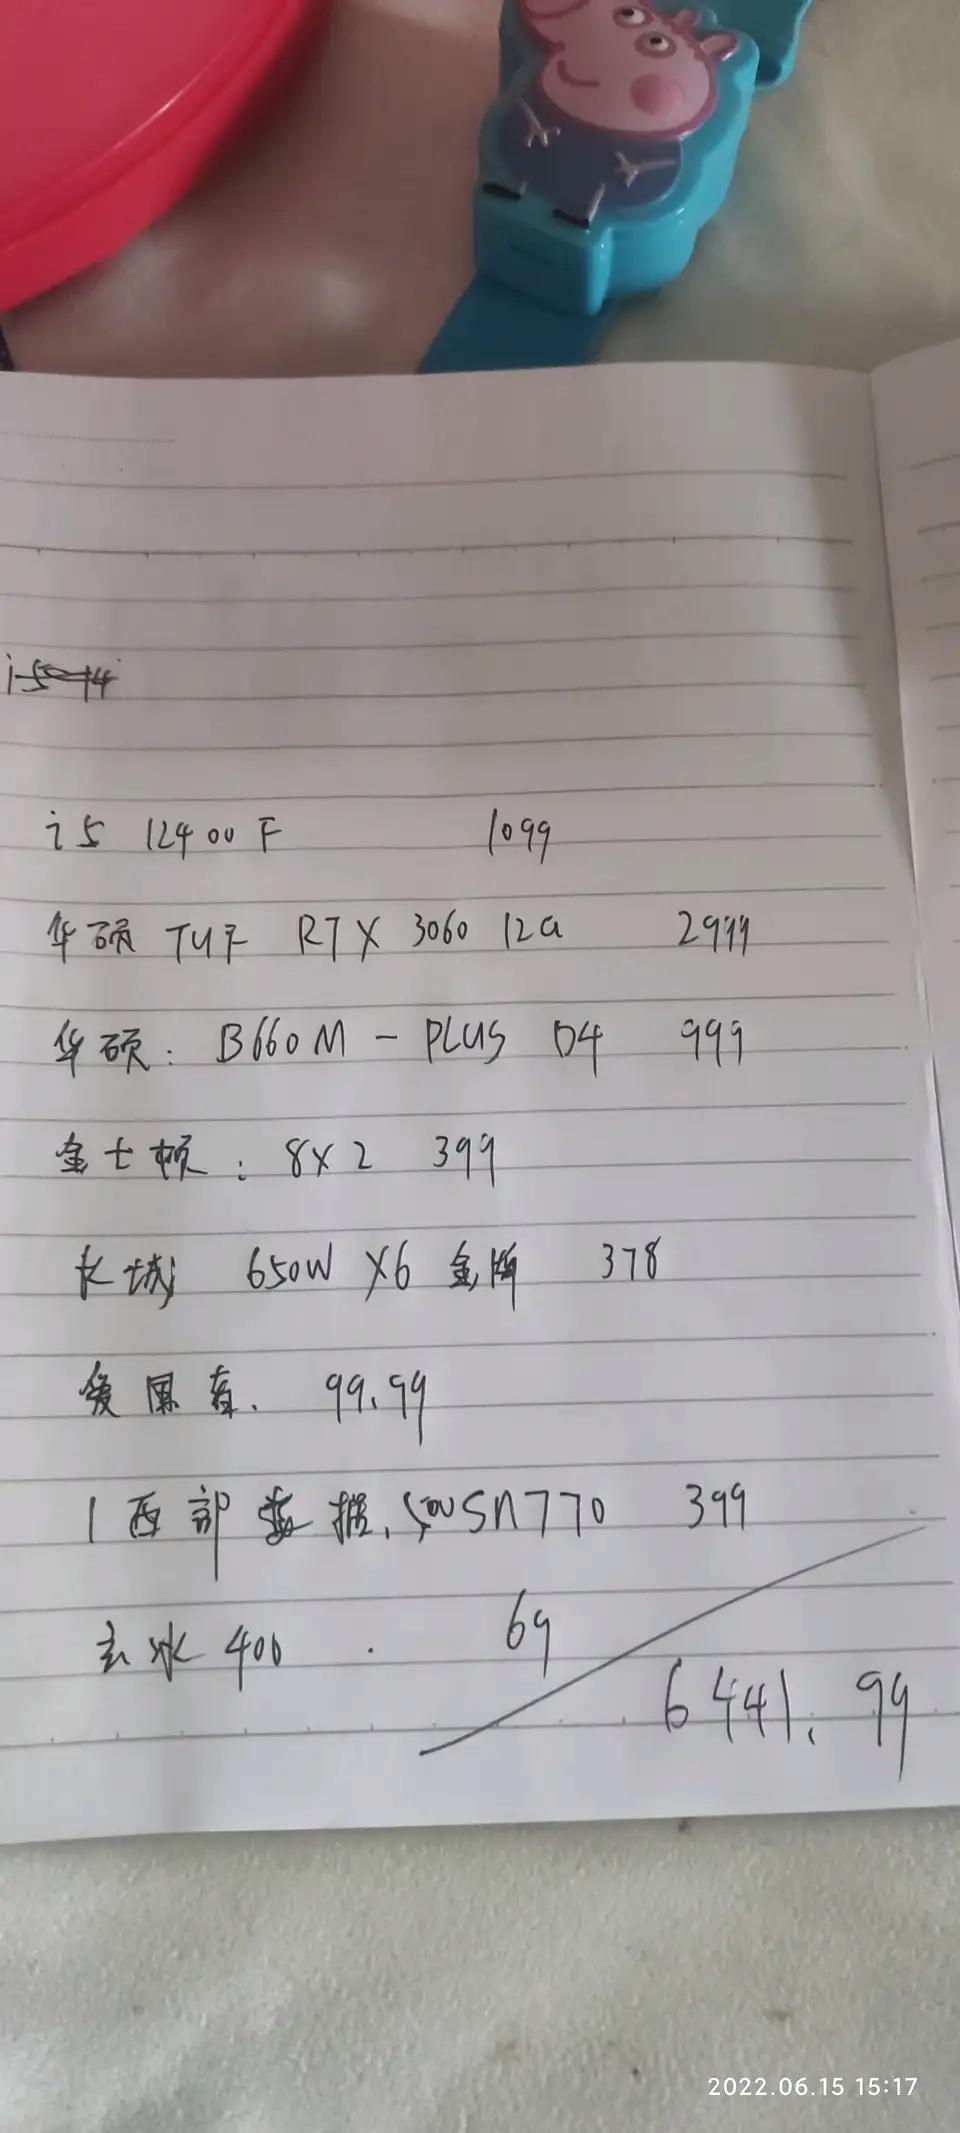 i5 12400F 1099
华硕 TUF RTX 3060 12G 2999
华硕: B660M - PLUS D4 999
金士顿: 8X2 399
长城 650W X6 金牌 378
爱国者. 99.99
1西部数据. 500SN770 399
玄冰400 . 69
6441.99
2022.06.15 15:17